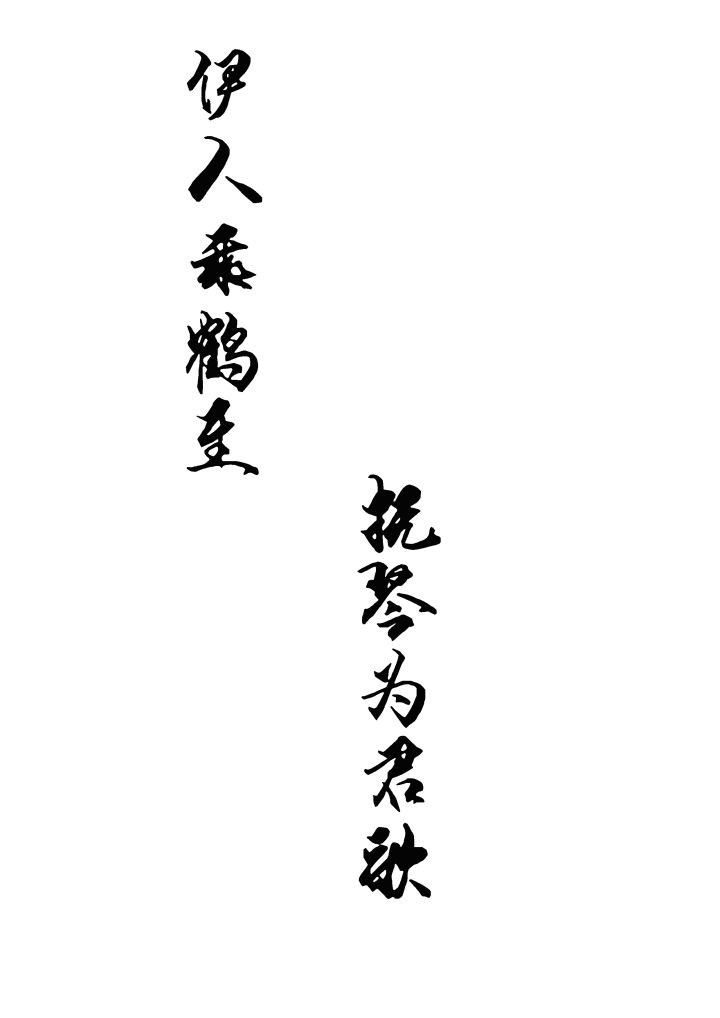 伊人乘鹤至
抚琴为君歌